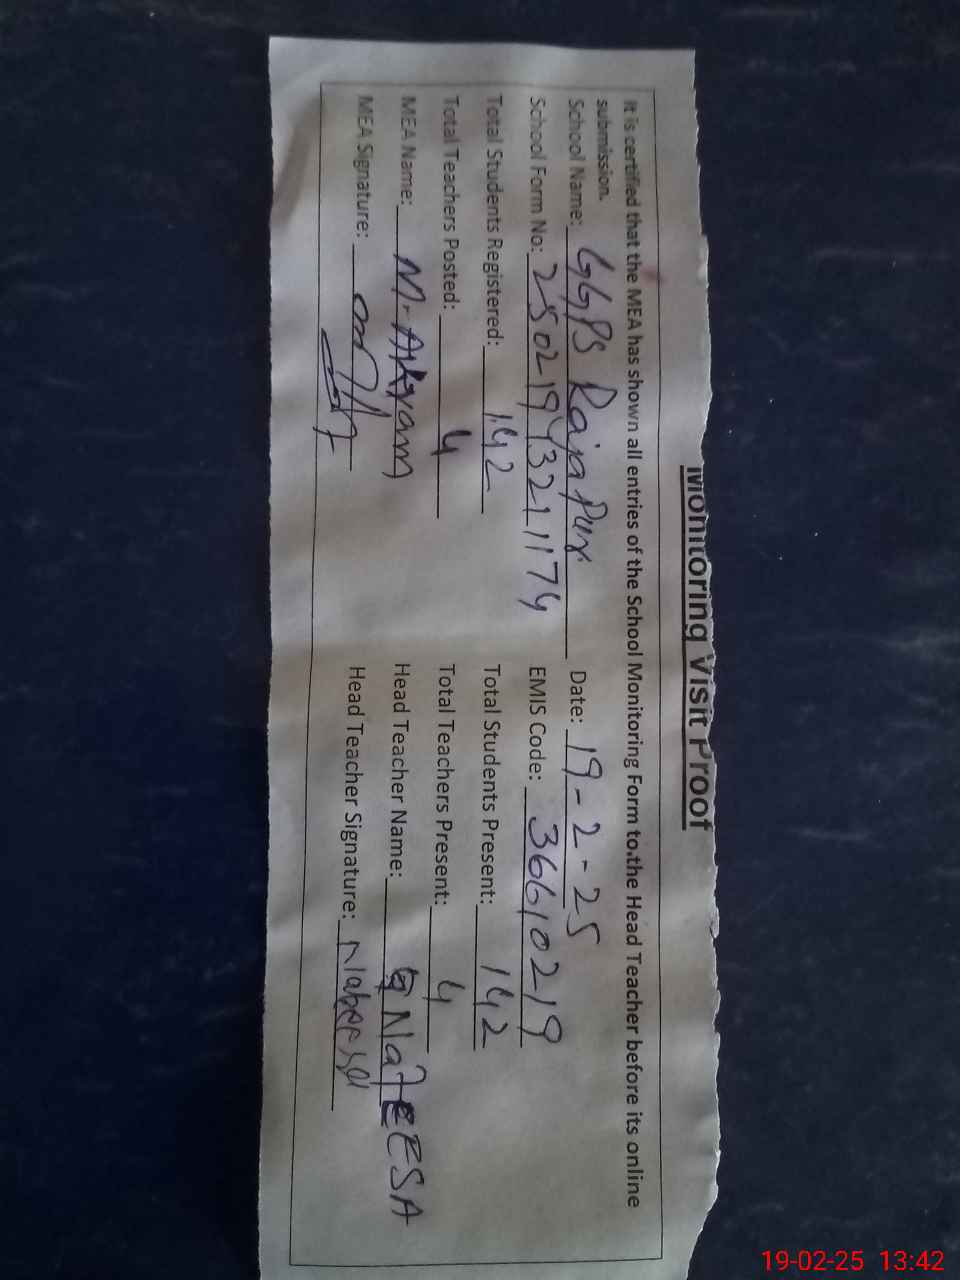 Monitoring Visit Proof
It is certified that the MEA has shown all entries of the School Monitoring Form to the Head Teacher before its online
submission.
School Name: GGPS Raja Pur Date: 19-2-25
School Form No: 25021943211174 EMIS Code: 36610219
Total Students Registered: 142 Total Students Present: 142
Total Teachers Posted: 4 Total Teachers Present: 4
MEA Name: M. Akram Head Teacher Name: NafEESA
MEA Signature: Head Teacher Signature:
19-02-25 13:42